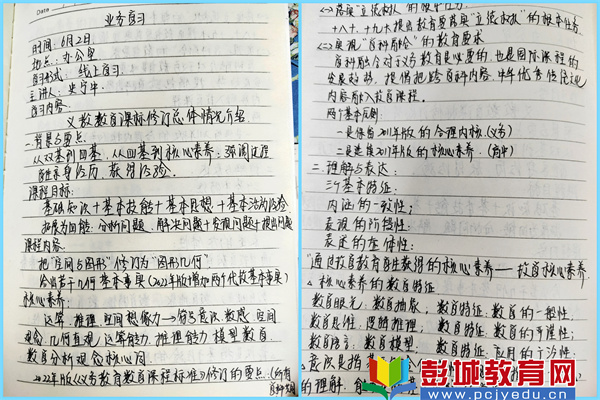 Date
业务学习
时间: 6月2日
地点: 办公室
学习形式: 线上学习
主讲人: 史宁中
学习内容:
义务教育课标修订总体情况介绍
一.背景与要点
从双基到四基, 从四基到核心素养: 强调过程
课程目标:
基础知识+基本技能+基本思想+基本活动经验
拓展为四能: 分析问题、解决问题+发现问题+提出问题
课程内容:
把"空间与图形"修订为"图形几何"
给出若干几何基本事实(2022年版增加两个代数基本事实)
核心素养:
运算、推理、空间想象力→符号意识、数感、空间
观念、几何直观、运算能力、推理能力、模型
数据分析观念核心词
2022年版《义务教育数学课程标准》修订的要点:
<一>落实"立德树人"的根本任务
十八大、十九大提出教育要落实"立德树人"的根本任务
<二>实现"学科融合"的教育要求
学科融合对于义务教育是必要的, 也是国际课程的
发展趋势, 提倡把跨学科内容、中华优秀传统文化
内容融入教育课程。
两个基本原则:
一是保留2011年版的合理内核(义务)
二是延续2017年版的核心素养。(高中)
二.理解与表达:
三个基本特征:
内涵的一致性;
表现的阶段性;
表述的整体性;
"通过数学教育学生获得的核心素养——数学核心素养
核心素养的数学特征
数学眼光: 数学抽象, 数学特征: 数学的一般性,
数学思维: 逻辑推理, 数学特征: 数学的严谨性;
数学语言: 数学模型, 数学特征: 应用的广泛性;
的理解、
彭城教育网
www.pcjyedu.cn